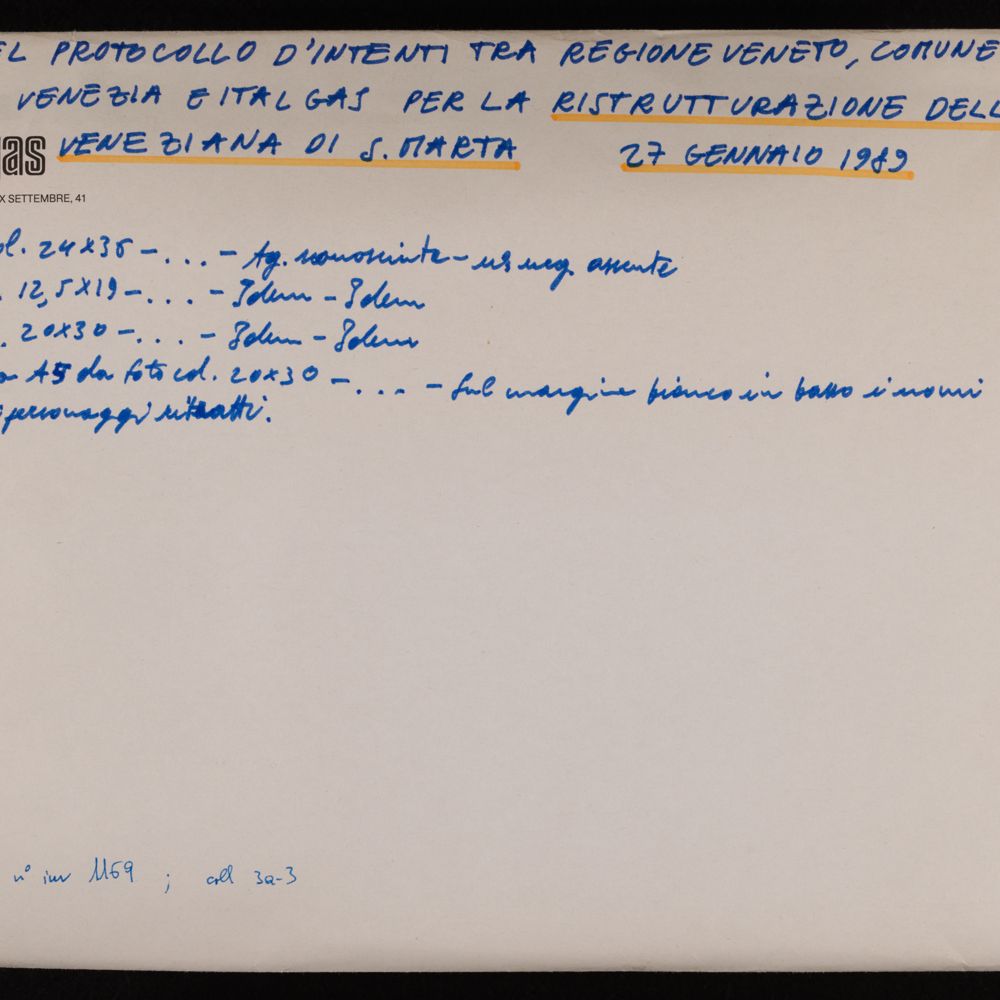 EL PROTOCOLLO D'INTENTI TRA REGIONE VENETO, COMUNE
VENEZIA E ITALGAS PER LA RISTRUTTURAZIONE DELL
as VENEZIANA DI S. MARTA 27 GENNAIO 1989
X SETTEMBRE, 41
ol. 24X36 - ... - Ag. sconosciuta - ns neg. assente
. 12,5X19 - ... - Idem - Idem
. 20X30 - ... - Idem - Idem
A5 da foto col. 20X30 - ... - Sul margine bianco in basso i nomi
i personaggi ritratti.
n° inv 1169 ; coll 3a-3